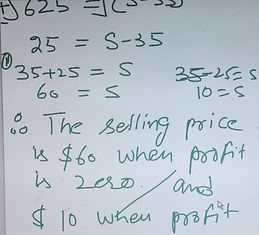 ±√625 = √(S-35)
25 = S-35
① 35+25 = S 35-25=S
60 = S 10=S
∴ The selling price
is $60 when profit
is zero. and
$10 when profit